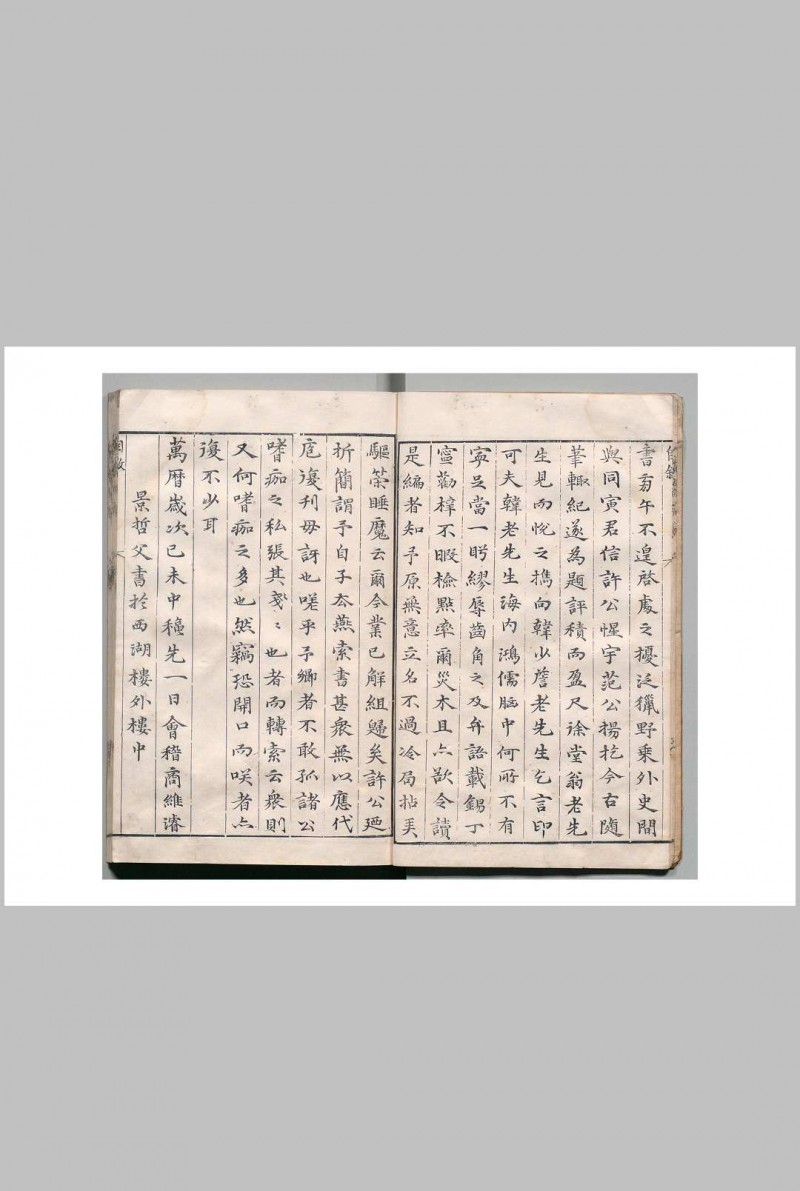 自敘
書旁午不遑啓處之擾泛獵野乘外史間
與同寅君信許公惺宇范公揚扢今古隨
筆輙紀遂為題評積而盈尺徐堂翁老先
生見而悅之攜向韓少詹老先生乞言印
可夫韓老先生海内鴻儒腦中何所不有
寧足當一盻繆辱齒角之及弁語載錫丁
寧勸梓不暇檢點率爾災木且亦欲令讀
是編者知予原無意立名不過冷局拈美
驅榮睡魔云爾今業已解組歸矣許公廼
折簡謂予自子去燕索書甚衆無以應代
庖復刋毋訝也嗟乎予鄉者不敢孤諸公
嗜痂之私張其戔〻也者而轉索云衆則
又何嗜痂之多也然竊恐開口而咲者亦
復不少耳
萬曆歲次己未中穐先一日會稽商維濬
景哲父書於西湖樓外樓中
自敘
六